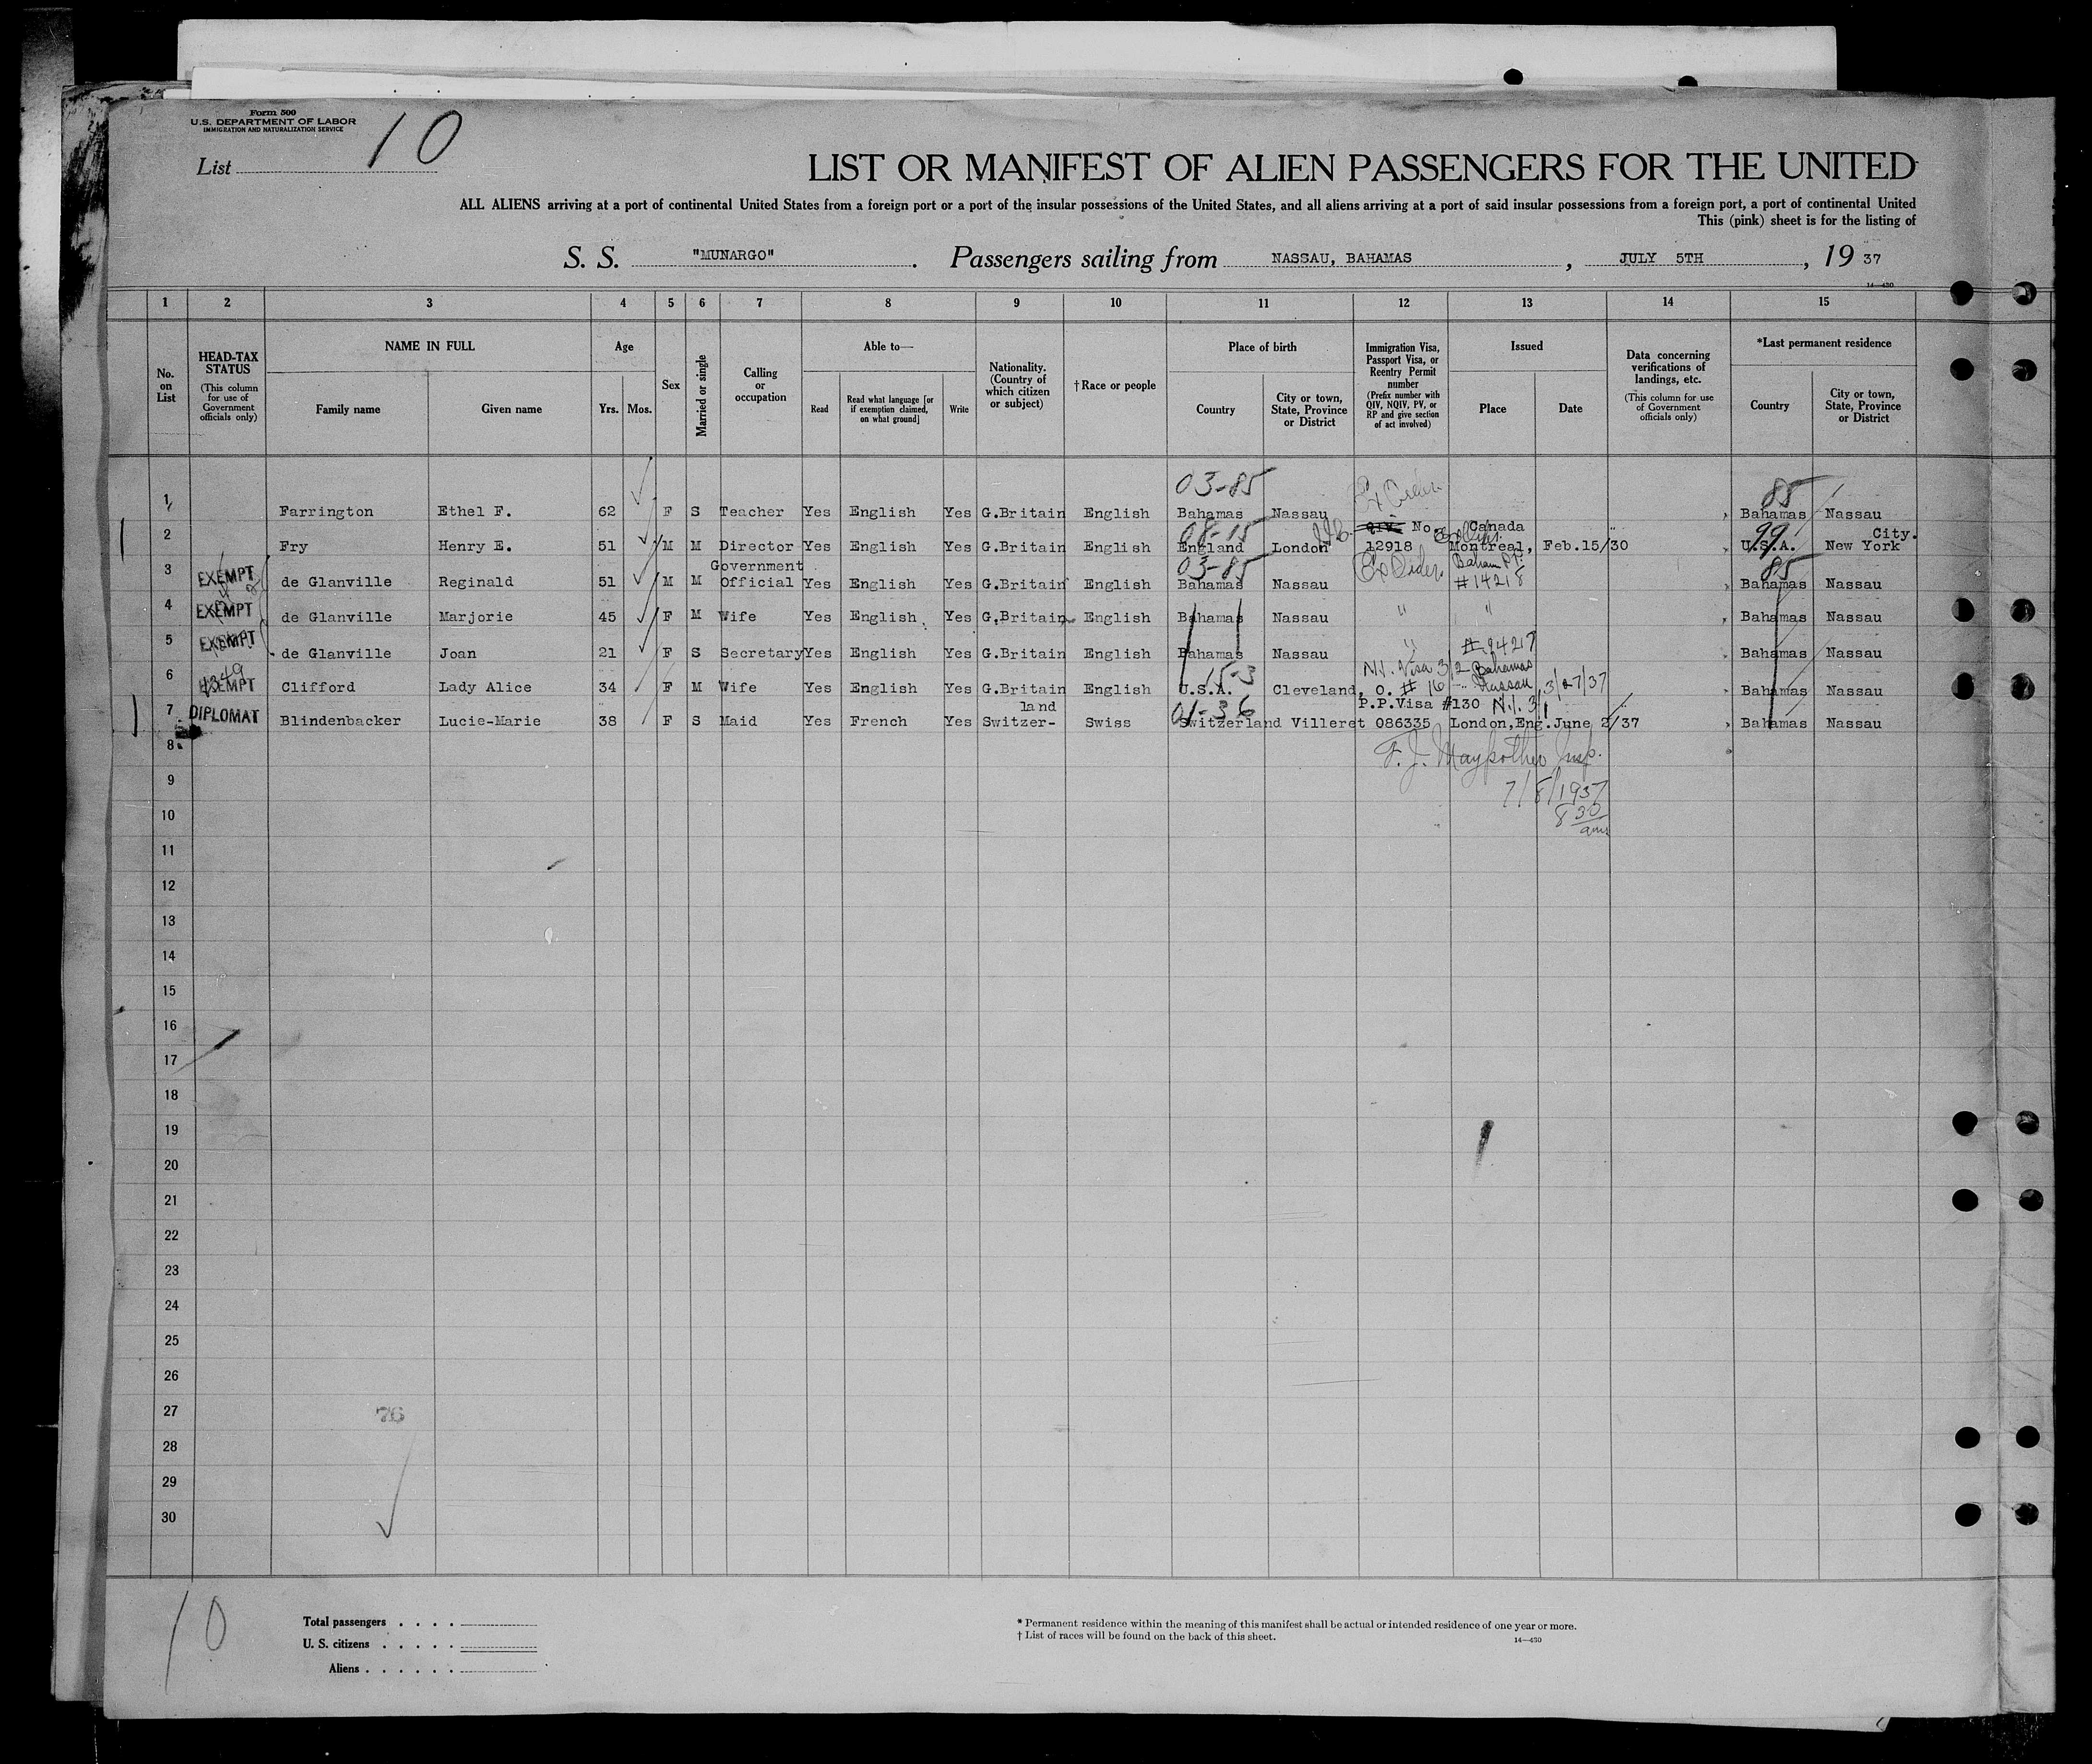 Form 500
U.S. DEPARTMENT OF LABOR
IMMIGRATION AND NATURALIZATION SERVICE
List 10
LIST OR MANIFEST OF ALIEN PASSENGERS FOR THE UNITED
ALL ALIENS arriving at a port of continental United States from a foreign port or a port of the insular possessions of the United States, and all aliens arriving at a port of said insular possessions from a foreign port, a port of continental United
This (pink) sheet is for the listing of
S. S. "MUNARGO". Passengers sailing from NASSAU, BAHAMAS, JULY 5TH, 19 37
14—430
1 2 3 4 5 6 7 8 9 10 11 12 13 14 15
No. on List
HEAD-TAX STATUS (This column for use of Government officials only)
NAME IN FULL
Family name Given name
Age
Yrs. Mos.
Sex
Married or single
Calling or occupation
Able to—
Read Read what language [or if exemption claimed, on what ground] Write
Nationality. (Country of which citizen or subject)
† Race or people
Place of birth
Country City or town, State, Province or District
Immigration Visa, Passport Visa, or Reentry Permit number (Prefix number with QIV, NQIV, PV, or RP and give section of act involved)
Issued
Place Date
Data concerning verifications of landings, etc. (This column for use of Government officials only)
*Last permanent residence
Country City or town, State, Province or District
03-85 85
1 Farrington Ethel F. 62 F S Teacher Yes English Yes G.Britain English Bahamas Nassau Bahamas Nassau
08-15 QIV. No. Canada 99 City.
2 Fry Henry E. 51 M M Director Yes English Yes G.Britain English England London 12918 Montreal, Feb.15/30 U.S.A. New York
Government 03-85 85
3 EXEMPT de Glanville Reginald 51 M M Official Yes English Yes G.Britain English Bahamas Nassau #14218 Bahamas Nassau
4 EXEMPT de Glanville Marjorie 45 F M Wife Yes English Yes G.Britain English Bahamas Nassau " " Bahamas Nassau
5 EXEMPT de Glanville Joan 21 F S Secretary Yes English Yes G.Britain English Bahamas Nassau " #9421 Bahamas Nassau
15-3 N.I. Visa 3/2 Bahamas
6 EXEMPT Clifford Lady Alice 34 F M Wife Yes English Yes G.Britain English U.S.A. Cleveland, O. # 16 Nassau 3/27/37 Bahamas Nassau
land 01-36 P.P.Visa #130 N.I. 3
7 DIPLOMAT Blindenbacker Lucie-Marie 38 F S Maid Yes French Yes Switzer- Swiss Switzerland Villeret 086335 London,Eng. June 2/37 Bahamas Nassau
8
F. J. Maypother Insp.
9
7/8/1937
10
8 30 am
11
12
13
14
15
16
17
18
19
20
21
22
23
24
25
26
27 76
28
29
30
10
Total passengers . . . .
U. S. citizens . . . . .
Aliens . . . . . .
* Permanent residence within the meaning of this manifest shall be actual or intended residence of one year or more.
† List of races will be found on the back of this sheet.
14—430